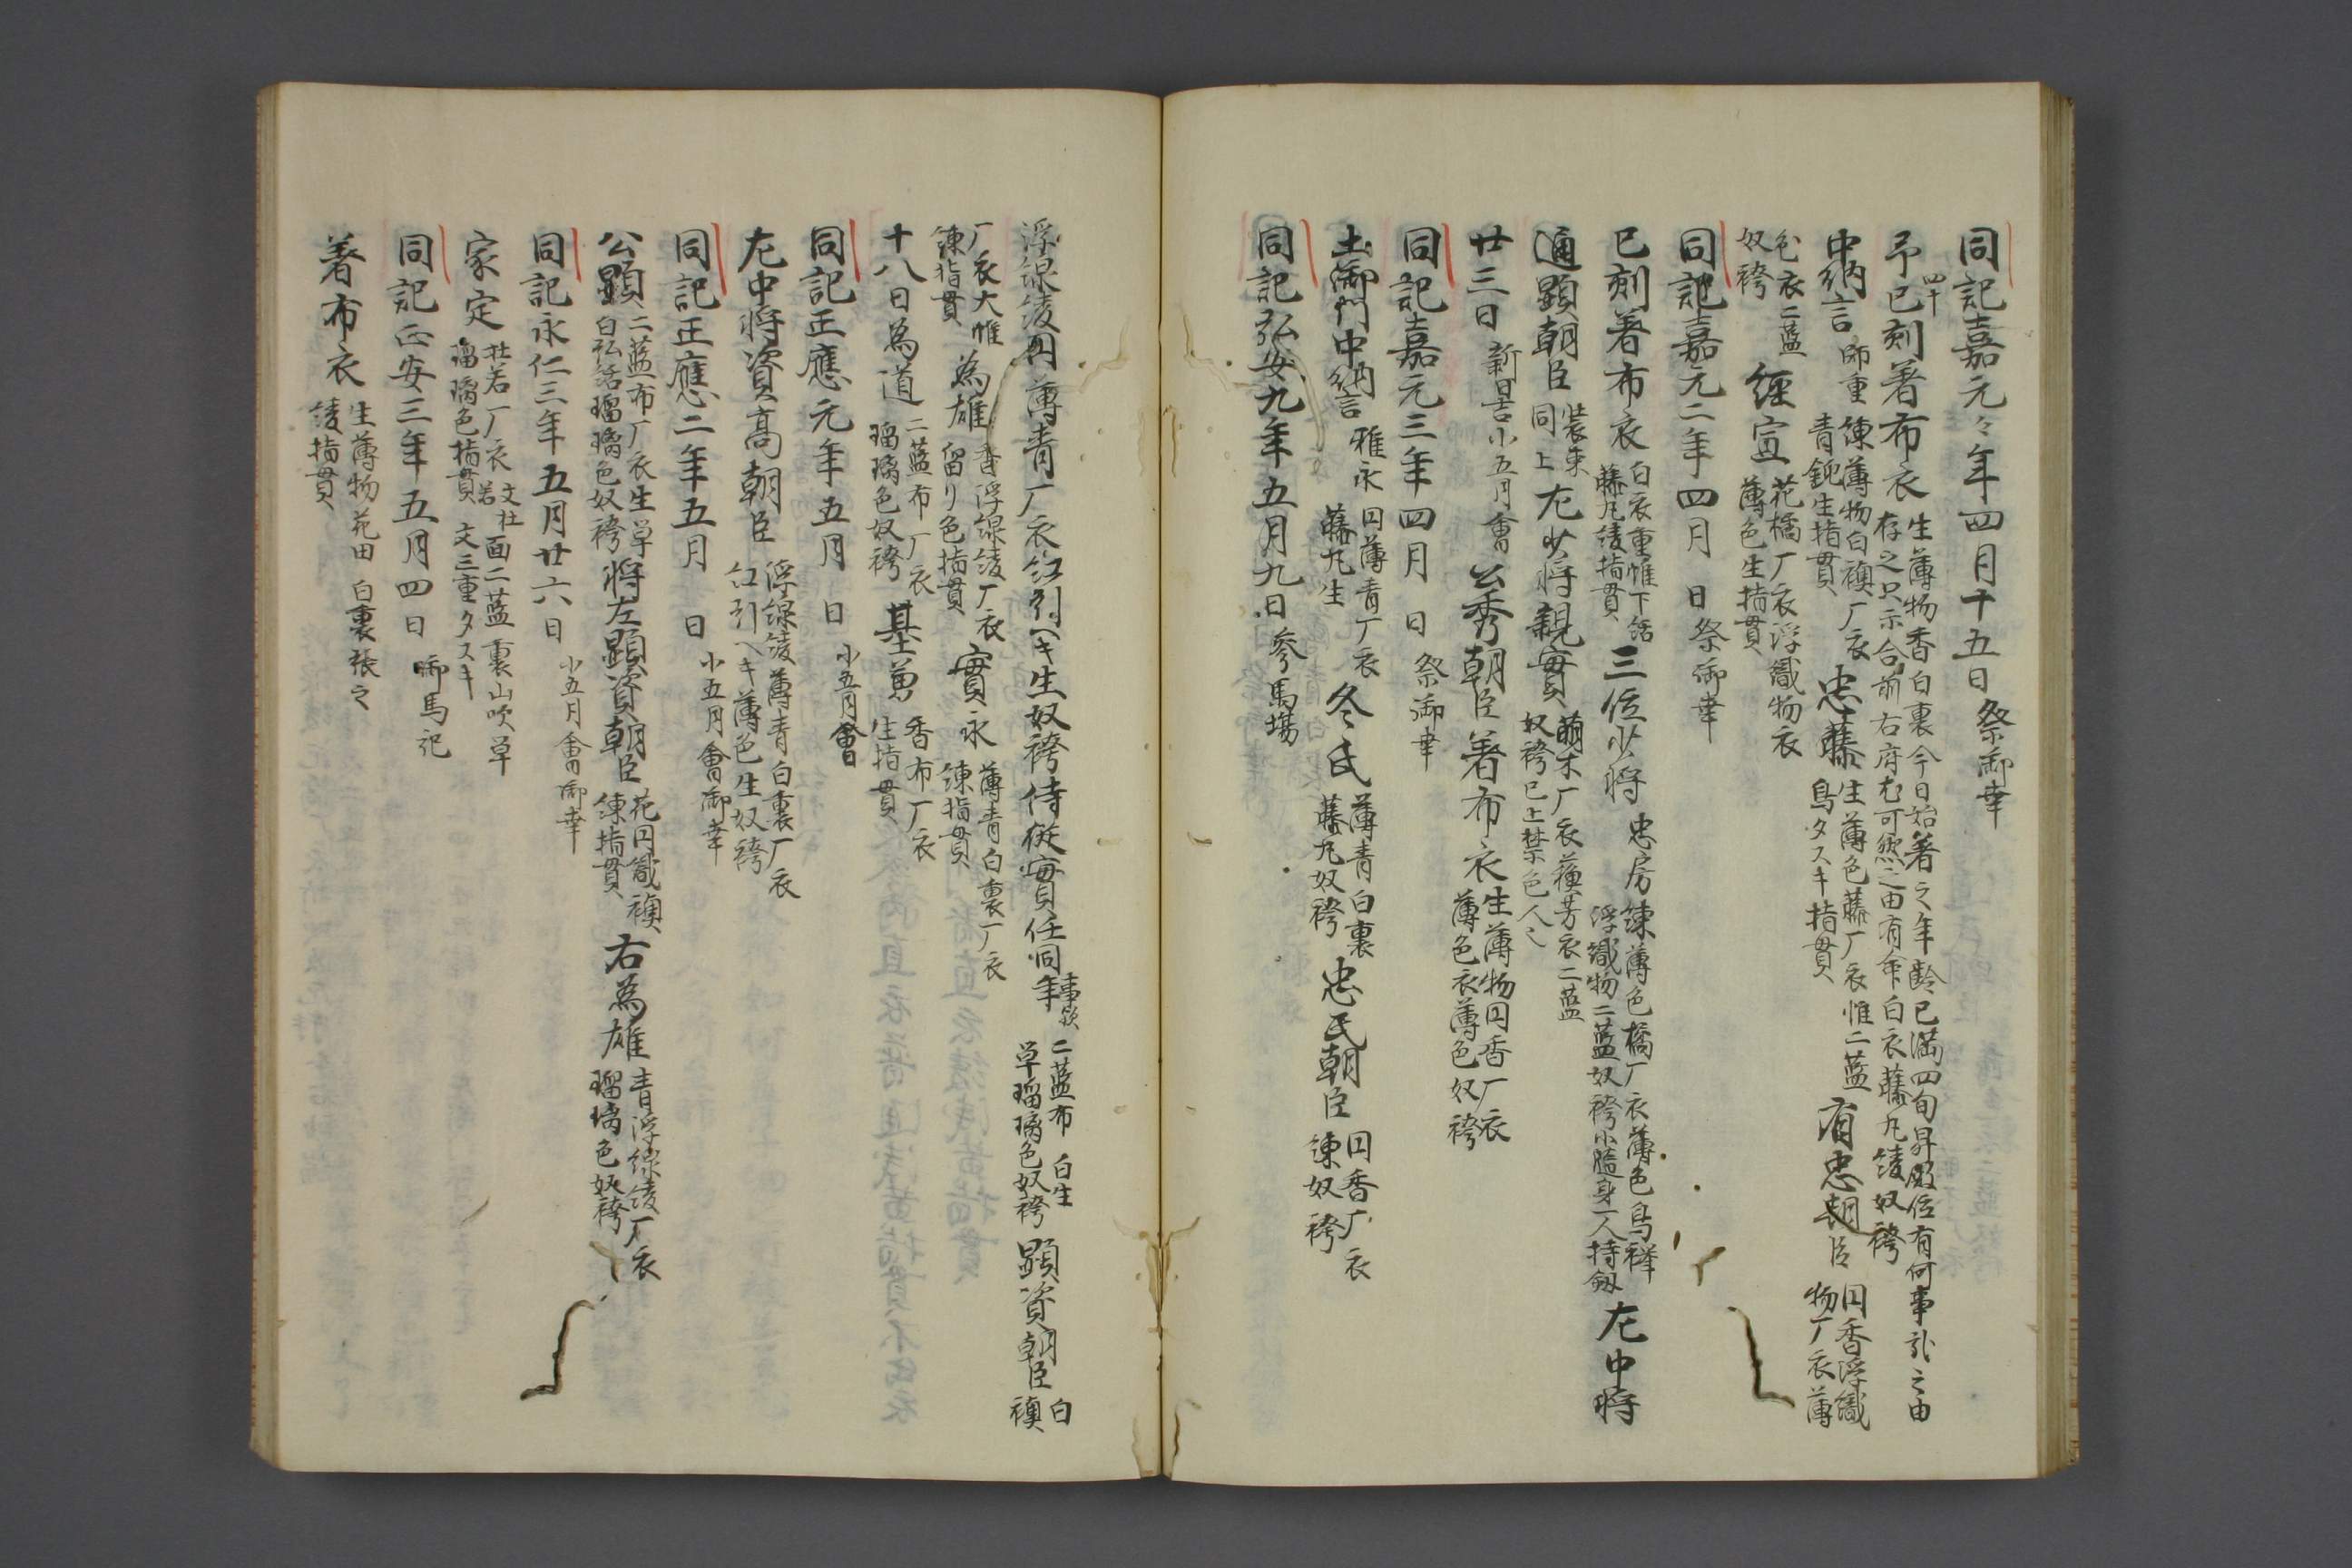 同記嘉元々年四月十五日祭御幸
予四十巳刻著布衣生薄物香白裏今日始著之年齢已満四旬昇殿位有何事哉之由
存之只示合前右府尤可然之由有命白衣藤丸綾奴袴
中納言師重練薄物白襖厂衣
青鈍生指貫忠藤生薄色藤厂衣帷二藍
鳥タスキ指貫有忠朝臣円香浮織
物厂衣薄
色衣二藍
奴袴経宣花橘厂衣浮織物衣
薄色生指貫
同記嘉元二年四月 日祭御幸
巳刻著布衣白衣重帷下括
藤丸綾指貫三位少将忠房練薄色橘厂衣薄色鳥襷
浮織物二藍奴袴小随身一人持劔左中将
通顕朝臣装束
同上左少将親實萌木厂衣蘇芳衣二藍
奴袴已上禁色人々
廿三日新日吉小五月會公秀朝臣著布衣生薄物円香厂衣
薄色衣薄色奴袴
同記嘉元三年四月 日祭御幸
土御門中納言雅永円薄青厂衣
藤丸生冬氏薄青白裏
藤丸奴袴忠氏朝臣円香厂衣
練奴袴
同記弘安九年五月九日参馬場
浮線綾円薄青厂衣紅引ヘキ生奴袴侍従實任同年事欤
二藍布白生
草瑠璃色奴袴顕資朝臣白
襖
厂衣大帷
練指貫為雄香浮線綾厂衣
留リ色指貫實永薄青白裏厂衣
練指貫
十八日為道二藍布厂衣
瑠璃色奴袴基勇香布厂衣
生指貫
同記正應元年五月 日小五月會
左中将資高朝臣浮線綾薄青白裏厂衣
紅引ヘキ薄色生奴袴
同記正應二年五月 日小五月會御幸
公顕二藍布厂衣生草
白弘括瑠璃色奴袴将左顕資朝臣花円織襖
練指貫右為雄青浮線綾厂衣
瑠璃色奴袴
同記永仁三年五月廿六日小五月會御幸
家定杜若厂衣文杜若面二藍裏山吹草
瑠璃色指貫文三重タスキ
同記正安三年五月四日御馬記
著布衣生薄物花田白裏張之
綾指貫